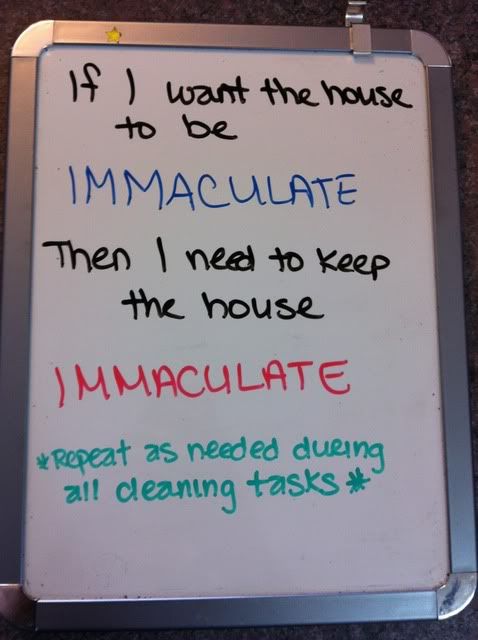 If I want the house
to be
IMMACULATE
Then I need to keep
the house
IMMACULATE
*Repeat as needed during
all cleaning tasks*